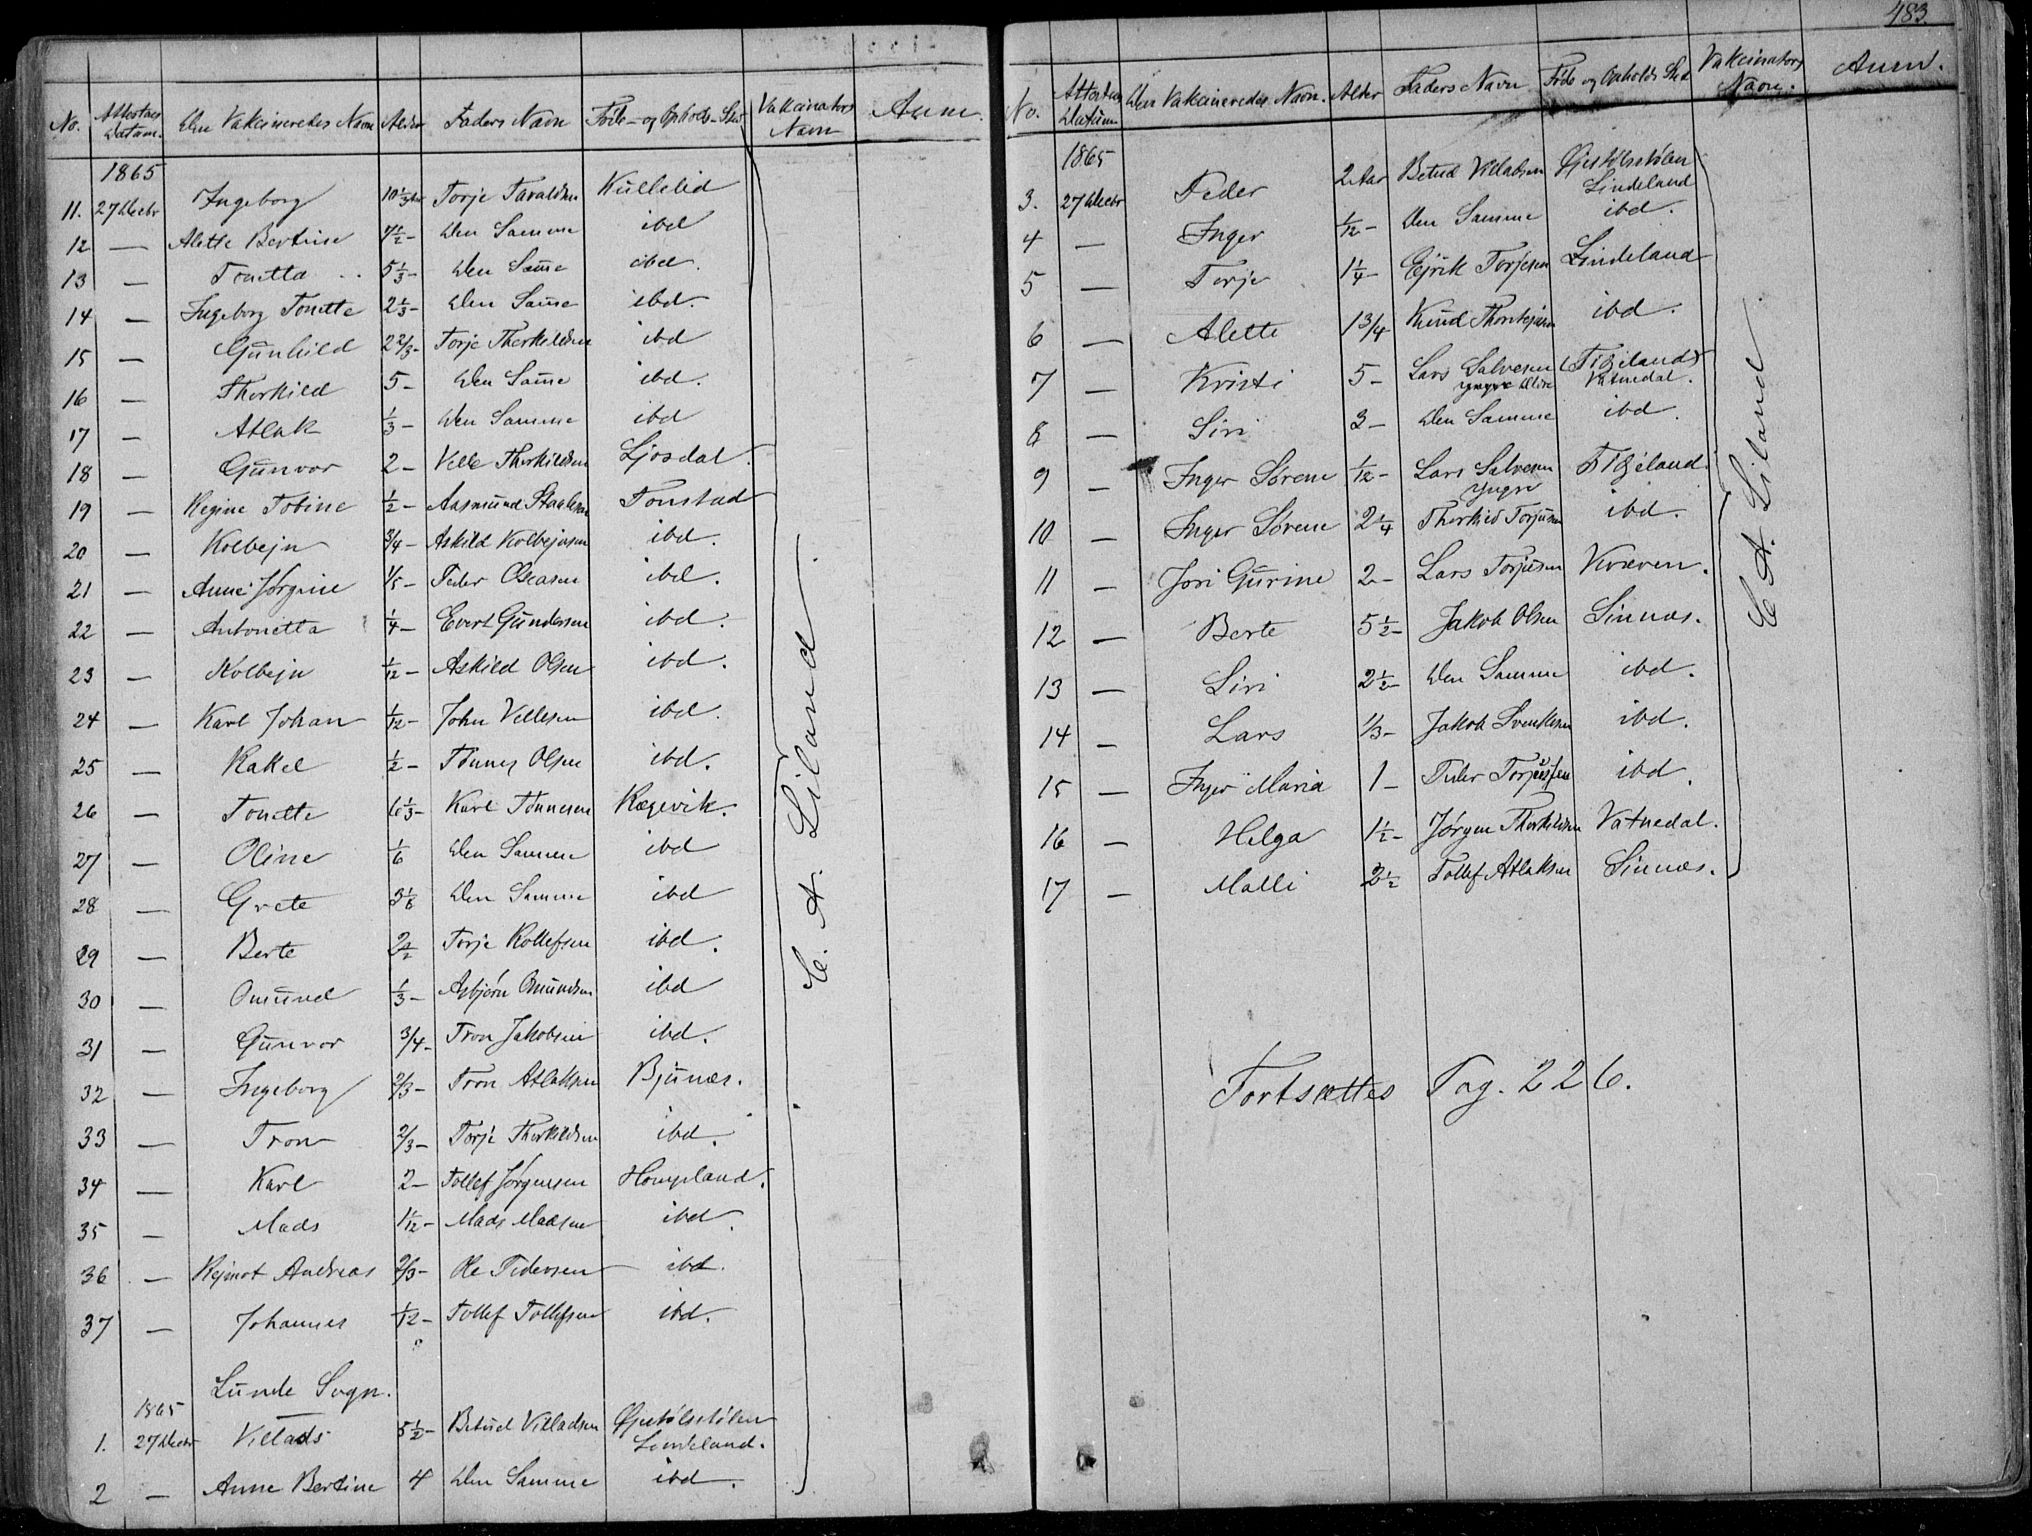 No. Attestats Datum. Den Vakcineredes Navn Alder Faders Navn Føde- og Ophols-Sted Vakcinators Navn Anm.
1865
11. 27 Decbr Ingeborg 10 1/3 Aar Torje Tavaldsen Kullelid
12 — Alette Bertine 7 1/2 - Den Samme ibd
13 — Tonetta 5 1/3 - Den Samme ibd.
14 — Ingeborg Tonette 2 1/3 - Den Samme ibd.
15 — Gunhild 2 2/3 - Torje Therkildsen ibd
16 — Therkild 5 - Den Samme ibd.
17 — Atlak 1/3 - Den Samme ibd
18 — Gunvor 2 - Velle Therkildsen Ljosdal.
19 — Regine Tobine 1/2 - Aasmund Staalesen Tonstad
20 — Kolbejn 3/4 - Askild Kolbejnsen ibd.
21 — Anne Jørgine 1/5 - Peder Oseasen ibd.
22 — Antonetta 1/4 - Evert Gundersen ibd.
23 — Kolbejn 1/12 - Askild Olsen ibd.
24 — Karl Johan 1/12 - John Vellesen ibd.
25 — Rakel 1/2 - Tønnes Olsen ibd.
26 — Tonette 6 1/3 - Karl Tønnesen Rægevik.
27 — Oline 1/6 Den Samme ibd
28 — Grete 3 1/8 Den Samme ibd
29 — Berte 2 1/2 Torje Rollefsen ibd.
30 — Omund 1/3 - Asbjørn Omundsen ibd
31 — Gunvor 3/4 - Tron Jakobsen ibd.
32 — Ingeborg 2/3 - Tron Atlaksen Bjunæs.
33 — Tron 2/3 - Torje Therkildsen ibd.
34 — Karl 2 - Tollef Jørgensen Hompland.
35 — Mads 1/12 - Mads Madsen ibd.
36 — Rejnert Andreas 2/3 - Ole Pedersen ibd.
37 — Johannes 1/12 - Tollef Tollefsen ibd.
C. A. Liland
Lunde Sogn.
1865
1. 27 Decbr Villads 5 1/2 - Betuel Villadsen Øjestølsstølen
Lindeland.
2 — Anne Bertine 4 Den Samme ibd.
483.
No. Attestats Datum Den Vakcineredes Navn. Alder Faders Navn Føde og Opholds Sted Vakcinators Navn. Anm.
1865
3. 27 Decbr Peder 2 Aar Betuel Villadsen Øjestølsstølen
Lindeland
4 — Inger 1/12 - Den Samme ibd.
5 — Torje 1 1/4 - Ejrik Torjesen Lindeland
6 — Alette 1 3/4 Knud Thorkejsen ibd.
7 — Kristi 5 - Lars Salvesen Fidjeland
Yngre Vatnedal.
8 — Siri 3 - Den Samme ibd.
9 — Inger Sørene 1/12 - Lars Salvesen Fidjeland.
Yngre
10 — Inger Sørene 2 1/4 Therkild Torjusen ibd.
11 — Jori Gurine 2 - Lars Torjusen Kvæven.
12 — Berte 5 1/2 - Jakob Olsen Sinnæs.
13 — Siri 2 1/2 Den Samme ibd.
14 — Lars 1/3 - Jakob Svenkesen ibd.
15 — Inger Maria 1 - Peder Torjussen ibd.
16 — Helga 1 1/2 - Jørgen Therkildsen Vatnedal.
17 — Malli 2 1/2 Tollef Atlaksen Sinnæs.
C. A. Liland
Fortsættes Pag. 226.